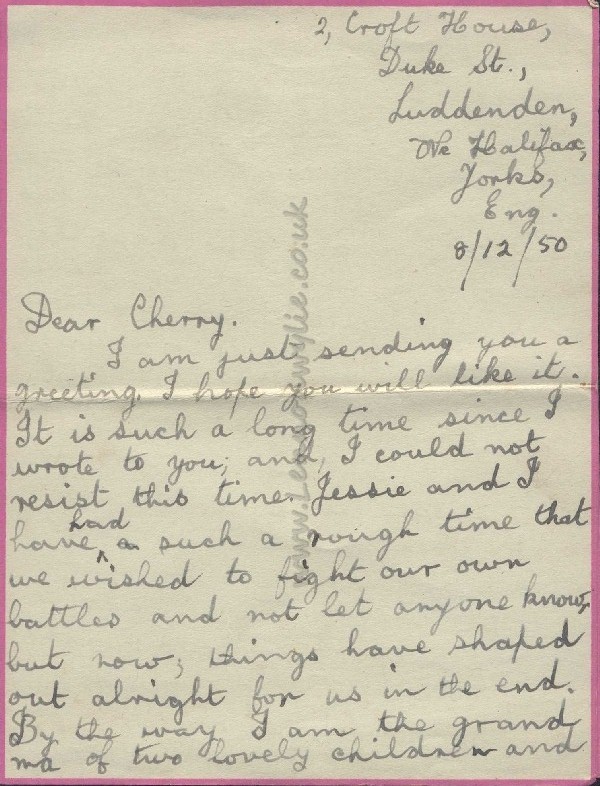 2, Croft House,
Duke St.,
Luddenden,
Nr Halifax,
Yorks,
Eng.
8/12/50
Dear Cherry.
I am just sending you a
greeting. I hope you will like it.
It is such a long time since I
wrote to you; and, I could not
resist this time. Jessie and I
have had such a rough time that
we wished to fight our own
battles and not let anyone know,
but now; things have shaped
out alright for us in the end.
By the way I am the grand
ma of two lovely children and